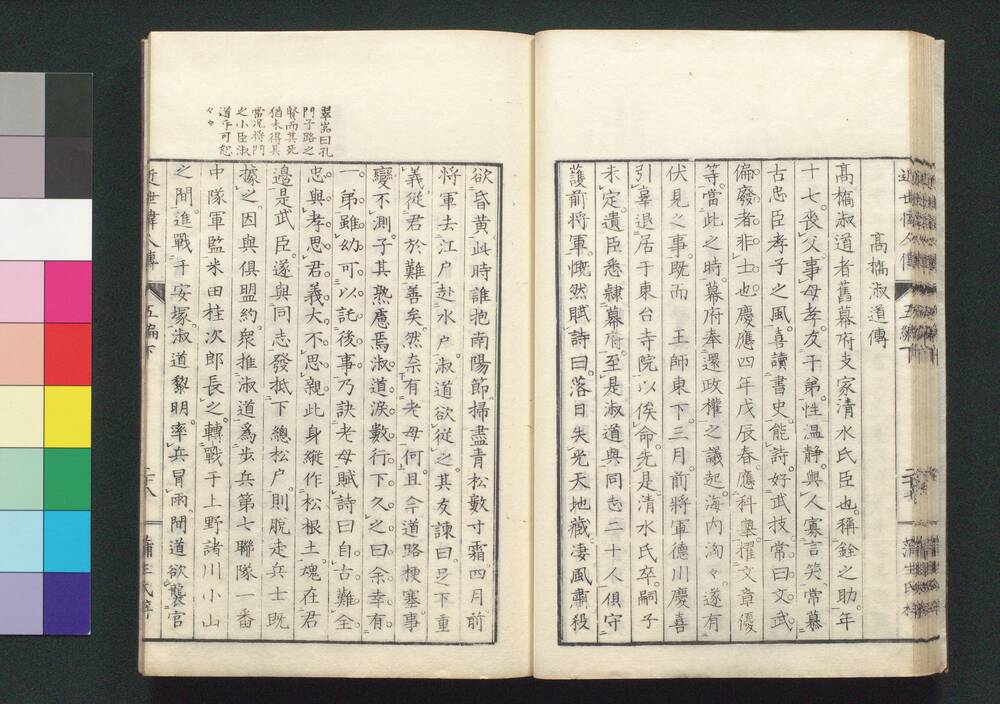 髙橋淑道傳
髙橋淑道者舊幕府支家清水氏臣也稱銓之助年
十七喪父事母孝友于弟性温靜與人寡言笑常慕
古忠臣孝子之風喜讀書史能詩好武技常曰文武
偏廢者非士也慶應四年戊辰春應科擧擢文章優
等當此之時幕府奉還政權之議起海内洶々遂有
伏見之事既而　王師東下三月前將軍德川慶喜
引辠退居于東台寺院以俟命先是清水氏卒嗣子
未定遺臣悉隷幕府至是淑道與同志二十人俱守
護前將軍慨然賦詩曰落日失光天地藏凄風肅殺
欲昏黄此時誰抱南陽節掃盡青松數寸霜四月前
將軍去江户赴水户淑道欲從之其友諫曰足下重
義從君於難善矣然奈有老母何且今道路梗塞事
變不測子其熟慮焉淑道淚數行下久之曰余幸有
一弟雖幼可以託後事乃訣老母賦詩曰自古難全
忠與孝思君義大不思親此身縱作松根土魂在君
邊是武臣遂與同志發抵下總松户則脫走兵士既
據之因與俱盟約衆推淑道爲步兵第七聯隊一番
中隊軍監米田桂次郎長之轉戰于上野諸川小山
之間進戰于安塚淑道黎明率兵冒雨間道欲襲官
翠嵓曰孔
門子路之
賢而其死
猶未得其
當况將門
之小臣淑
道乎可恕
々々
近世偉人傳
五編下
二十八
蒲生氏梓